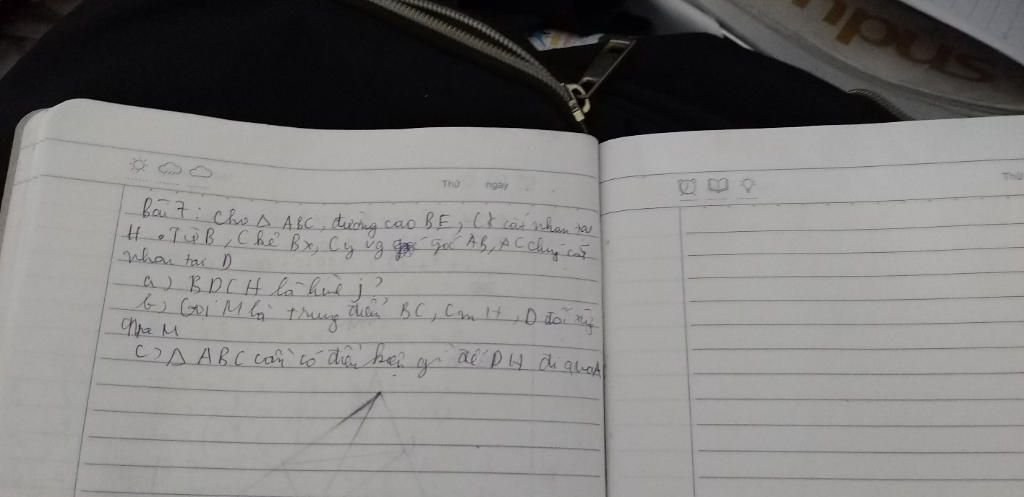 Thứ ngày
Bài 7: Cho Δ ABC, đường cao BE, CK cắt nhau tại
H. Từ B, C kẻ Bx, Cy vg góc AB, AC chúng cắt
nhau tại D
a) BDCH là hình j?
b) Gọi M là trung điểm BC, Cm H, D đối xứng
qua M
c) Δ ABC cần có điều kiện gì để DH đi qua A
Thứ